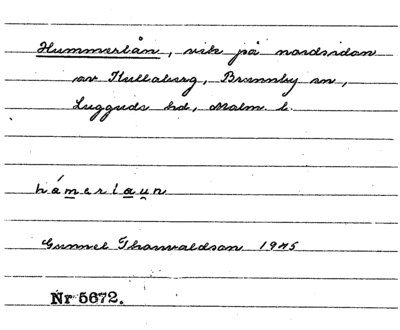 Hummerlån, vik på nordsidan
av Kullaberg, Brunnby sn,
Luggude hd, Malm. l.
hámerlaun
Gunnel Thorvaldson 1945
Nr 5672.